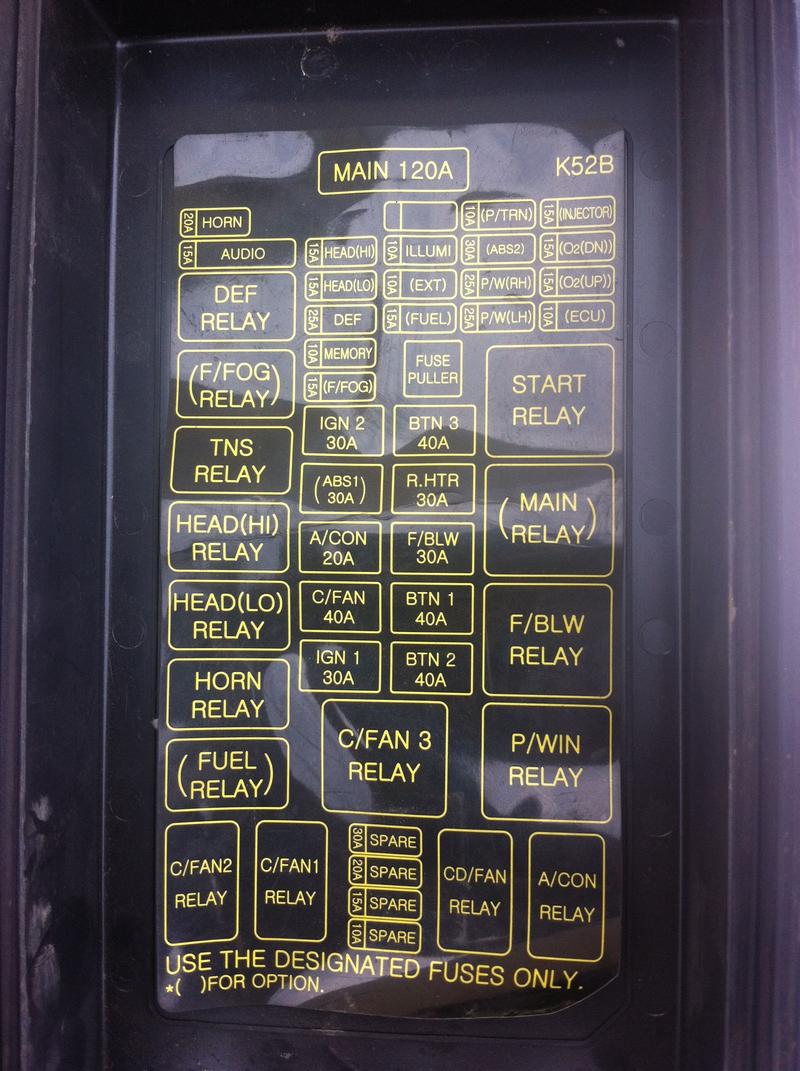 MAIN 120A
K52B
20A HORN
10A (P/TRN)
15A (INJECTOR)
15A AUDIO
15A HEAD(HI)
10A ILLUMI
30A (ABS2)
15A (O2(DN))
15A HEAD(LO)
10A (EXT)
25A P/W(RH)
15A (O2(UP))
25A DEF
15A (FUEL)
25A P/W(LH)
10A (ECU)
DEF
RELAY
10A MEMORY
15A (F/FOG)
FUSE
PULLER
START
RELAY
(F/FOG
RELAY)
IGN 2
30A
BTN 3
40A
TNS
RELAY
(ABS1
30A)
R.HTR
30A
(MAIN
RELAY)
HEAD(HI)
RELAY
A/CON
20A
F/BLW
30A
HEAD(LO)
RELAY
C/FAN
40A
BTN 1
40A
F/BLW
RELAY
HORN
RELAY
IGN 1
30A
BTN 2
40A
(FUEL
RELAY)
C/FAN 3
RELAY
P/WIN
RELAY
C/FAN2
RELAY
C/FAN1
RELAY
30A SPARE
20A SPARE
15A SPARE
10A SPARE
CD/FAN
RELAY
A/CON
RELAY
USE THE DESIGNATED FUSES ONLY.
*( )FOR OPTION.